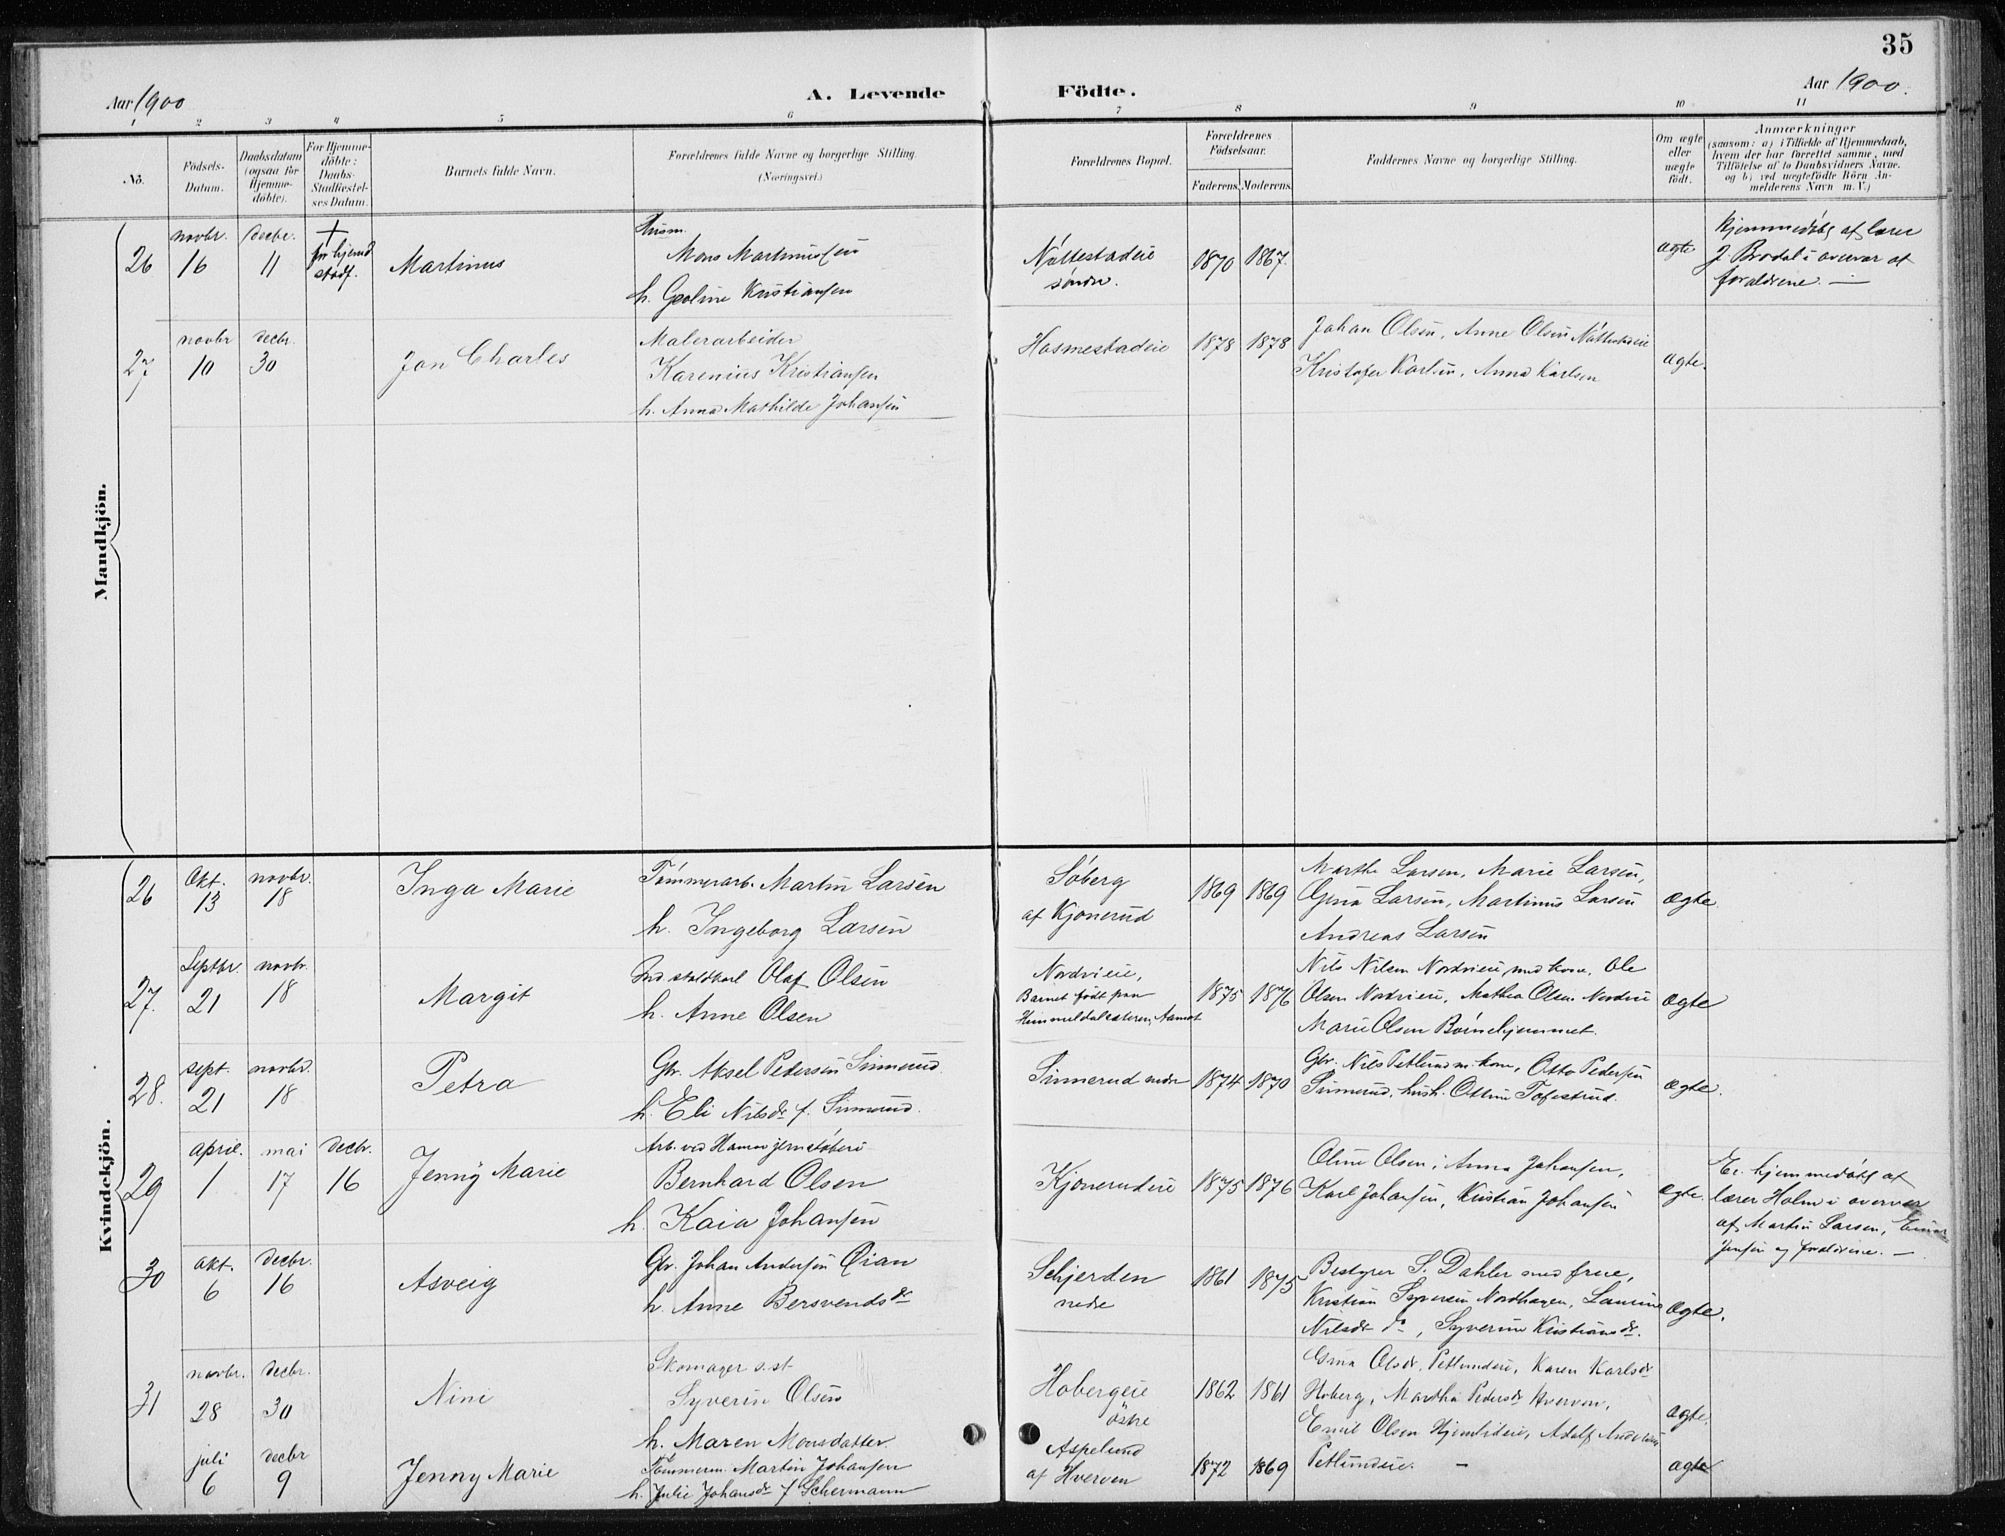 35
Aar 1900 A. Levende Födte. Aar 1900.
1 2 3 4 5 6 7 8 9 10 11
No.
Födsels-
Datum.
Daabsdatum
(ogsaa for
Hjemme-
döbte).
For Hjemme-
döbte:
Daabs-
Stadfæstel-
ses Datum.
Barnets fulde Navn.
Forældrenes fulde Navne og borgerlige Stilling.
(Næringsvei.)
Forældrenes Bopæl.
Forældrenes
Födselsaar.
Faderens. Moderens.
Faddernes Navne og borgerlige Stilling.
Om ægte
eller
uægte
födt.
Anmærkninger
(saasom: a) i Tilfælde af Hjemmedaab,
hvem der har forrettet samme, med
Tilföielse af to Daabsvidners Navne,
og b) ved uægtefödte Börn An-
melderens Navn m. V.)
Mandkjön.
26
novbr.
16
decbr.
11
+
før hjemd
stadf.
Martinus
Husm.
Mons Martinussen
h. Goline Kristiansen
Nøttestadeie
søndre.
1870 1867.
ægte
hjemmedøbt af lærer
J. Brodal i overvær af
forældrene. —
27
novbr
10
decbr.
30
Jon Charles
Malerarbeider
Karenius Kristiansen
h. Anna Mathilde Johansen
Hosmestadeie
1878 1878
Johan Olsen, Anne Olsen Nøttestadeie
Kristofer Karlsen, Anna Karlsen
ægte.
Kvindekjön.
26
Okt.
13
novbr.
18
Inga Marie
Tømmerarb. Martin Larsen
h. Ingeborg Larsen
Søberg
af Kjonerud
1869 1869
Marthe Larsen, Marie Larsen,
Gina Larsen, Martinus Larsen
Andreas Larsen
ægte.
27.
Septbr.
21
novbr.
18
Margit
staldkarl Olaf Olsen
h. Anne Olsen
Nordvieie,
Barnet født paa
Himmeldalsæteren, Aamot
1875 1876
Nils Nilsen Nordvieie med kone, Ole
Olsen Nordvieie, Mathea Olsen Nordvie
Marie Olsen Børnehjemmet.
ægte
28.
sept.
21
novbr.
18
Petra
Gbr. Aksel Pedersen Sinnerud.
h. Eli Nilsdr f. Sinnerud.
Sinnerud nedre
1874 1870
Gbr. Nils Petlund m. kone, Otto Pedersen
Sinnerud, hush. Ottine Tofestrud.
ægte.
29
april.
1
mai
17
decbr.
16
Jenny Marie
Arb. ved Hamar jernstøberi
Bernhard Olsen
h. Kaia Johansen
Kjonerudeie
1875 1876
Oline Olsen, Anna Johansen,
Karl Johansen, Kristian Johansen
ægte.
Er hjemmedøbt af
lærer Holm i overvær
af Martin Larsen, Einar
Jensen og forældrene. —
30
okt.
6
decbr.
16
Asveig
Gbr. Johan Andersen Qian
h. Anne Bersvendsdr
Schjerden
nedre
1861 1875
Bestyrer S. Dahler med frue,
Kristian Syversen Nordhagen, Laurine
Nilsdr do, Syverine Kristiansdr.
ægte.
31
novbr.
28
decbr.
30
Nini
Skomager s.st
Syverin Olsen
h. Maren Monsdatter
Hobergeie
östre
1862 1861
Gina Olsdr. Petlundeie, Karen Karlsdr
Hoberg, Martha Pedersdr Hverven,
Emil Olsen Hjemlideie, Adolf Andersen
Petlundeie. —
ægte.
juli
6
decbr
9
Jenny Marie
Tømmerm. Martin Johansen
h. Julie Johansdr f Schermann
Aspelund
af Hverven
1872 1869
ægte